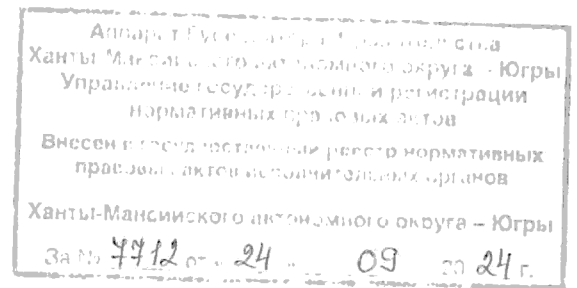 Аппарат Губернатора, Правительства
Ханты-Мансийского автономного округа – Югры
Управление государственной регистрации
нормативных правовых актов
Внесен в государственный реестр нормативных
правовых актов исполнительных органов
Ханты-Мансийского автономного округа – Югры
За № 7712 от « 24 » 09 20 24 г.